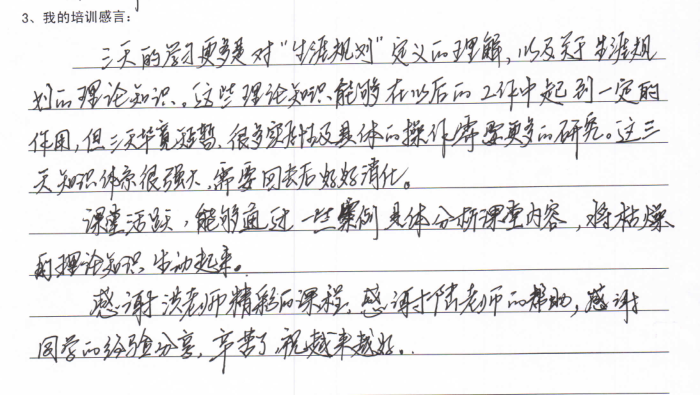 3、我的培训感言：
三天的学习更多是对“生涯规划”定义的理解，以及关于生涯规
划的理论知识。这些理论知识能够在以后的工作中起到一定的
作用，但三天毕竟短暂，很多实际以及具体的操作需要更多的研究。这三
天知识体系很强大，需要回去后好好消化。
课堂活跃，能够通过一些案例具体分析课堂内容，将枯燥
的理论知识生动起来。
感谢洪老师精彩的课程，感谢陆老师的帮助，感谢
同学的经验分享，辛苦了，祝越来越好。